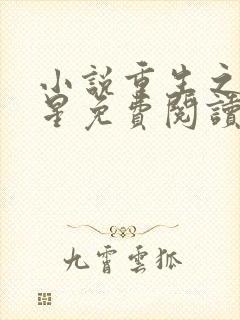 小說重生之
星免費閱讀
九霄雲狐